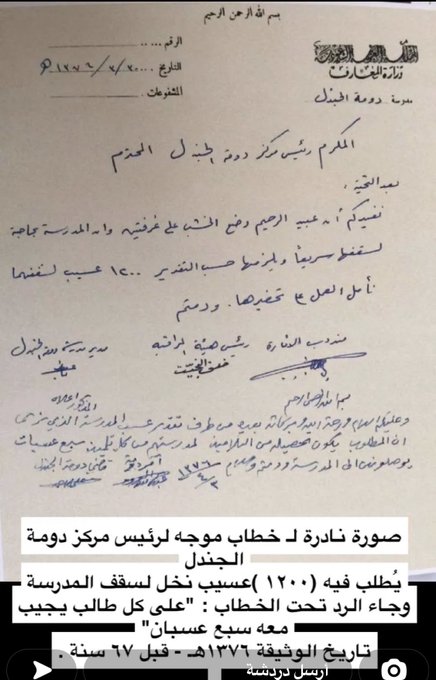 بسم الله الرحمن الرحيم
المملكة العربية السعودية
وزارة المعارف
مدرسة دومة الجندل
الرقم
التاريخ ٣٠/٣/١٣٧٦ هـ
المشفوعات
المكرم رئيس مركز دومة الجندل المحترم
بعد التحية ،
نفيدكم أن عبيد الرحيم وضع الخشب على غرفتين وان المدرسة بحاجة
لسقفها سريعاً ويلزمها حسب التقدير ١٢٠٠ عسيب لسقفهما
نأمل العمل على تحضيرها . ودمتم
مندوب الأمارة رئيس هيئة المراقبة مدير مدرسة دومة الجندل
بسم الله الرحمن الرحيم
وعليكم السلام ورحمة الله وبركاته بعده من طرف تقدير عسيب المدرسة الذي
ان المطلوب يكون تحصيله من التلاميذ كل تلميذ سبع عسبات
يوصلونهن الى المدرسة ودمتم
١٣٧٦
صورة نادرة لـ خطاب موجه لرئيس مركز دومة
الجندل
يُطلب فيه (١٢٠٠ )عسيب نخل لسقف المدرسة
وجاء الرد تحت الخطاب : "على كل طالب يجيب
معه سبع عسبان"
تاريخ الوثيقة ١٣٧٦هـ - قبل ٦٧ سنة .
أرسل دردشة